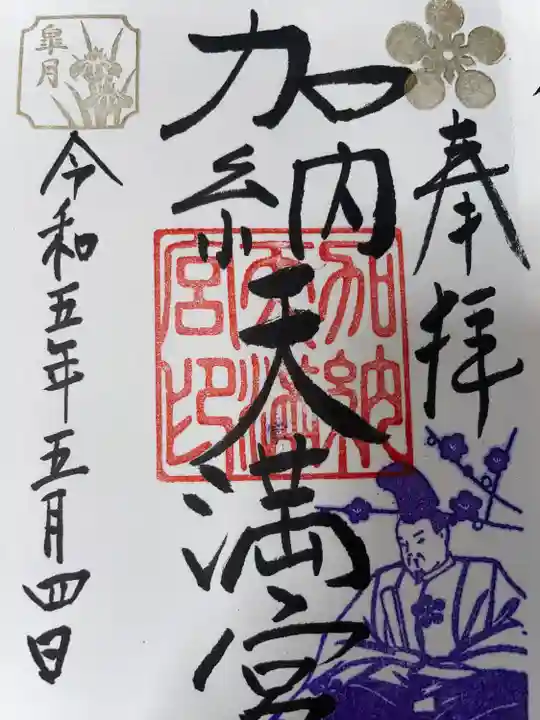 奉拝
加納天満宮
加納天満宮印
令和五年五月四日
皐月